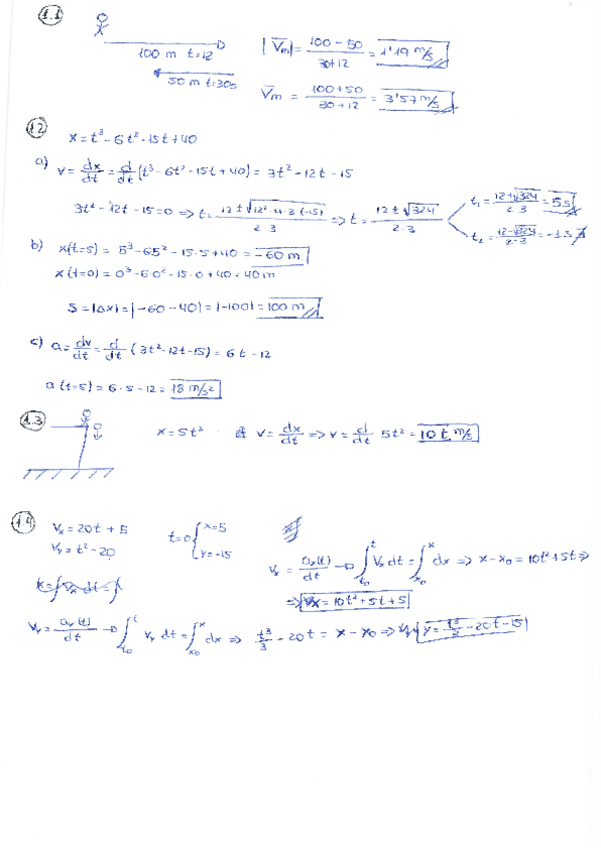 1.1
100 m t=12
50 m t=30s
|V̅m| = (100 - 50)/(30+12) = 1'19 m/s
V̅m = (100+50)/(30+12) = 3'57 m/s
1.2
x = t³ - 6t² - 15t + 40
a) v = dx/dt = d/dt (t³ - 6t² - 15t + 40) = 3t² - 12t - 15
3t² - 12t - 15 = 0 => t = (12 ± √(12²·4·3(-15)))/(2·3) => t = (12 ± √324)/(2·3)
t₁ = (12+√324)/(2·3) = 5s
t₂ = (12-√324)/(2·3) = -1s
b) x(t=5) = 5³ - 6·5² - 15·5 + 40 = -60 m
x(t=0) = 0³ - 6·0² - 15·0 + 40 = 40 m
S = |Δx| = |-60 - 40| = |-100| = 100 m
c) a = dv/dt = d/dt (3t² - 12t - 15) = 6t - 12
a(t=5) = 6·5 - 12 = 18 m/s²
1.3
x = 5t² v = dx/dt => v = d/dt 5t² = 10t m/s
1.4
Vx = 20t + 5
Vy = t² - 20
t=0 { x=5
y=-15
Vx = ax(t)/dt → ∫t₀ᵗ Vx dt = ∫x₀ˣ dx => x - x₀ = 10t² + 5t =>
=> x = 10t² + 5t + 5
Vy = ay(t)/dt → ∫t₀ᵗ Vy dt = ∫x₀ˣ dx => t³/3 - 20t = x - x₀ => y = t³/3 - 20t - 15